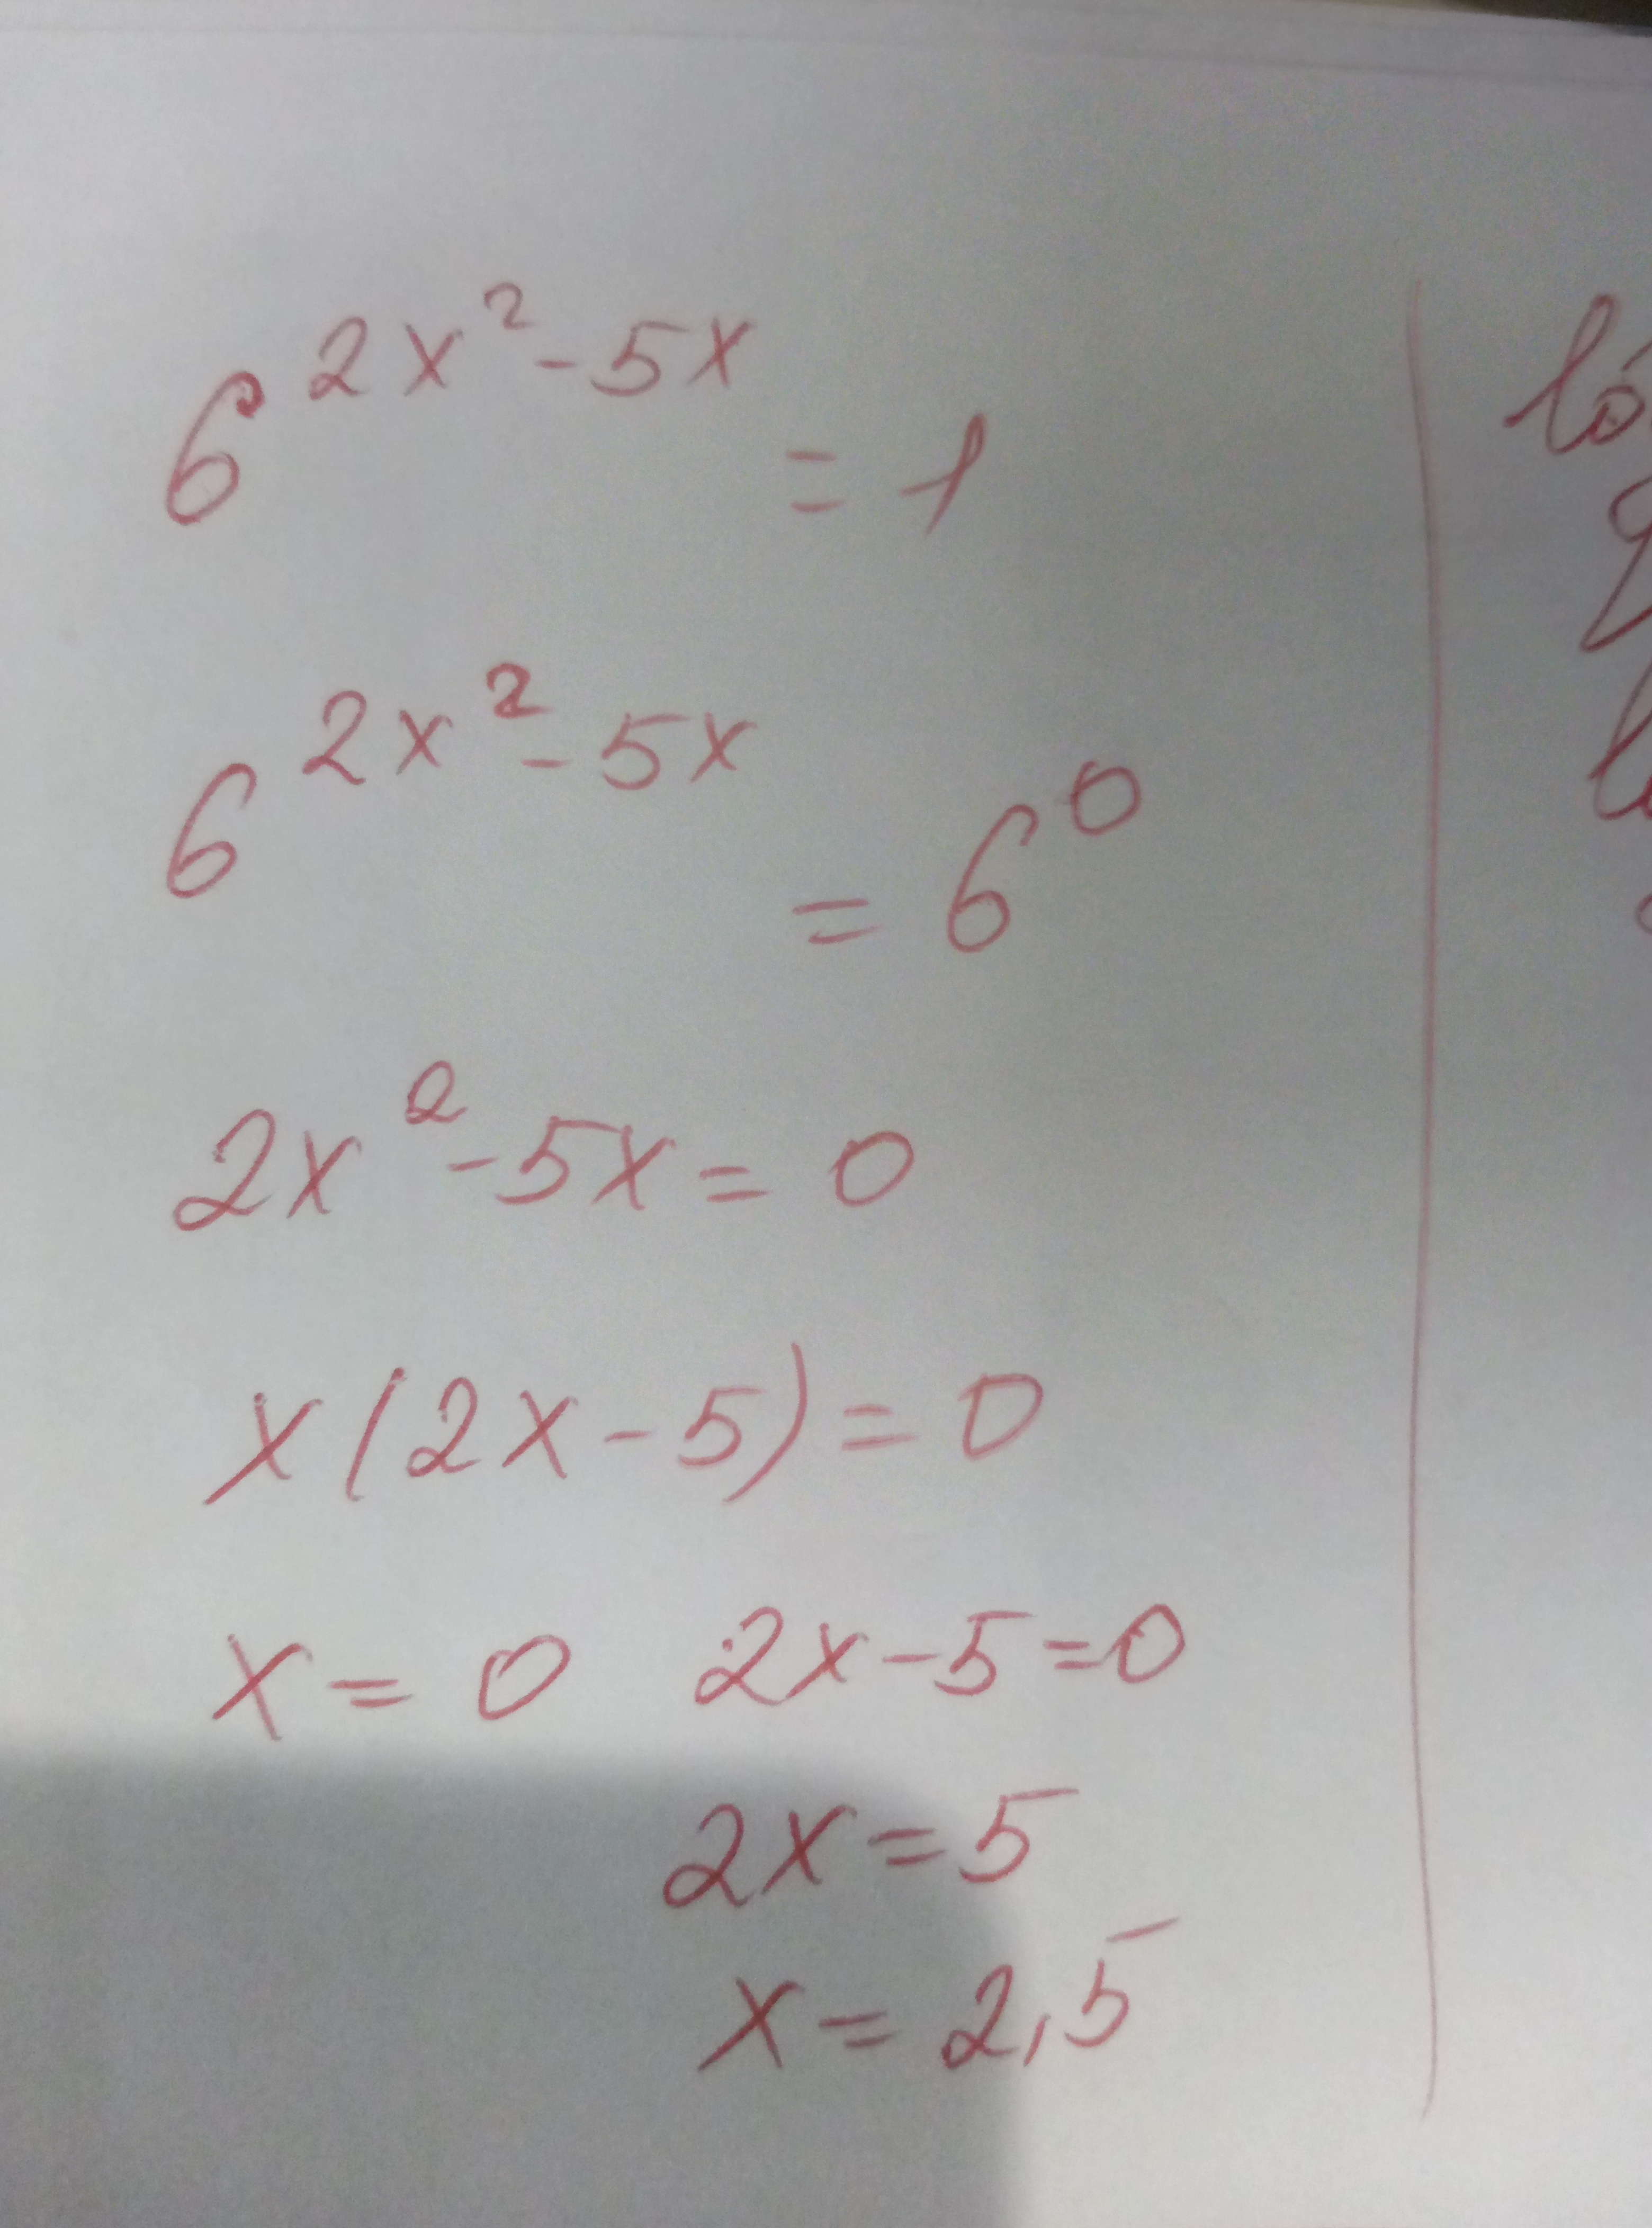 6^{2x^2-5x} = 1
6^{2x^2-5x} = 6^0
2x^2-5x = 0
x(2x-5) = 0
x = 0 2x-5=0
2x=5
x=2,5